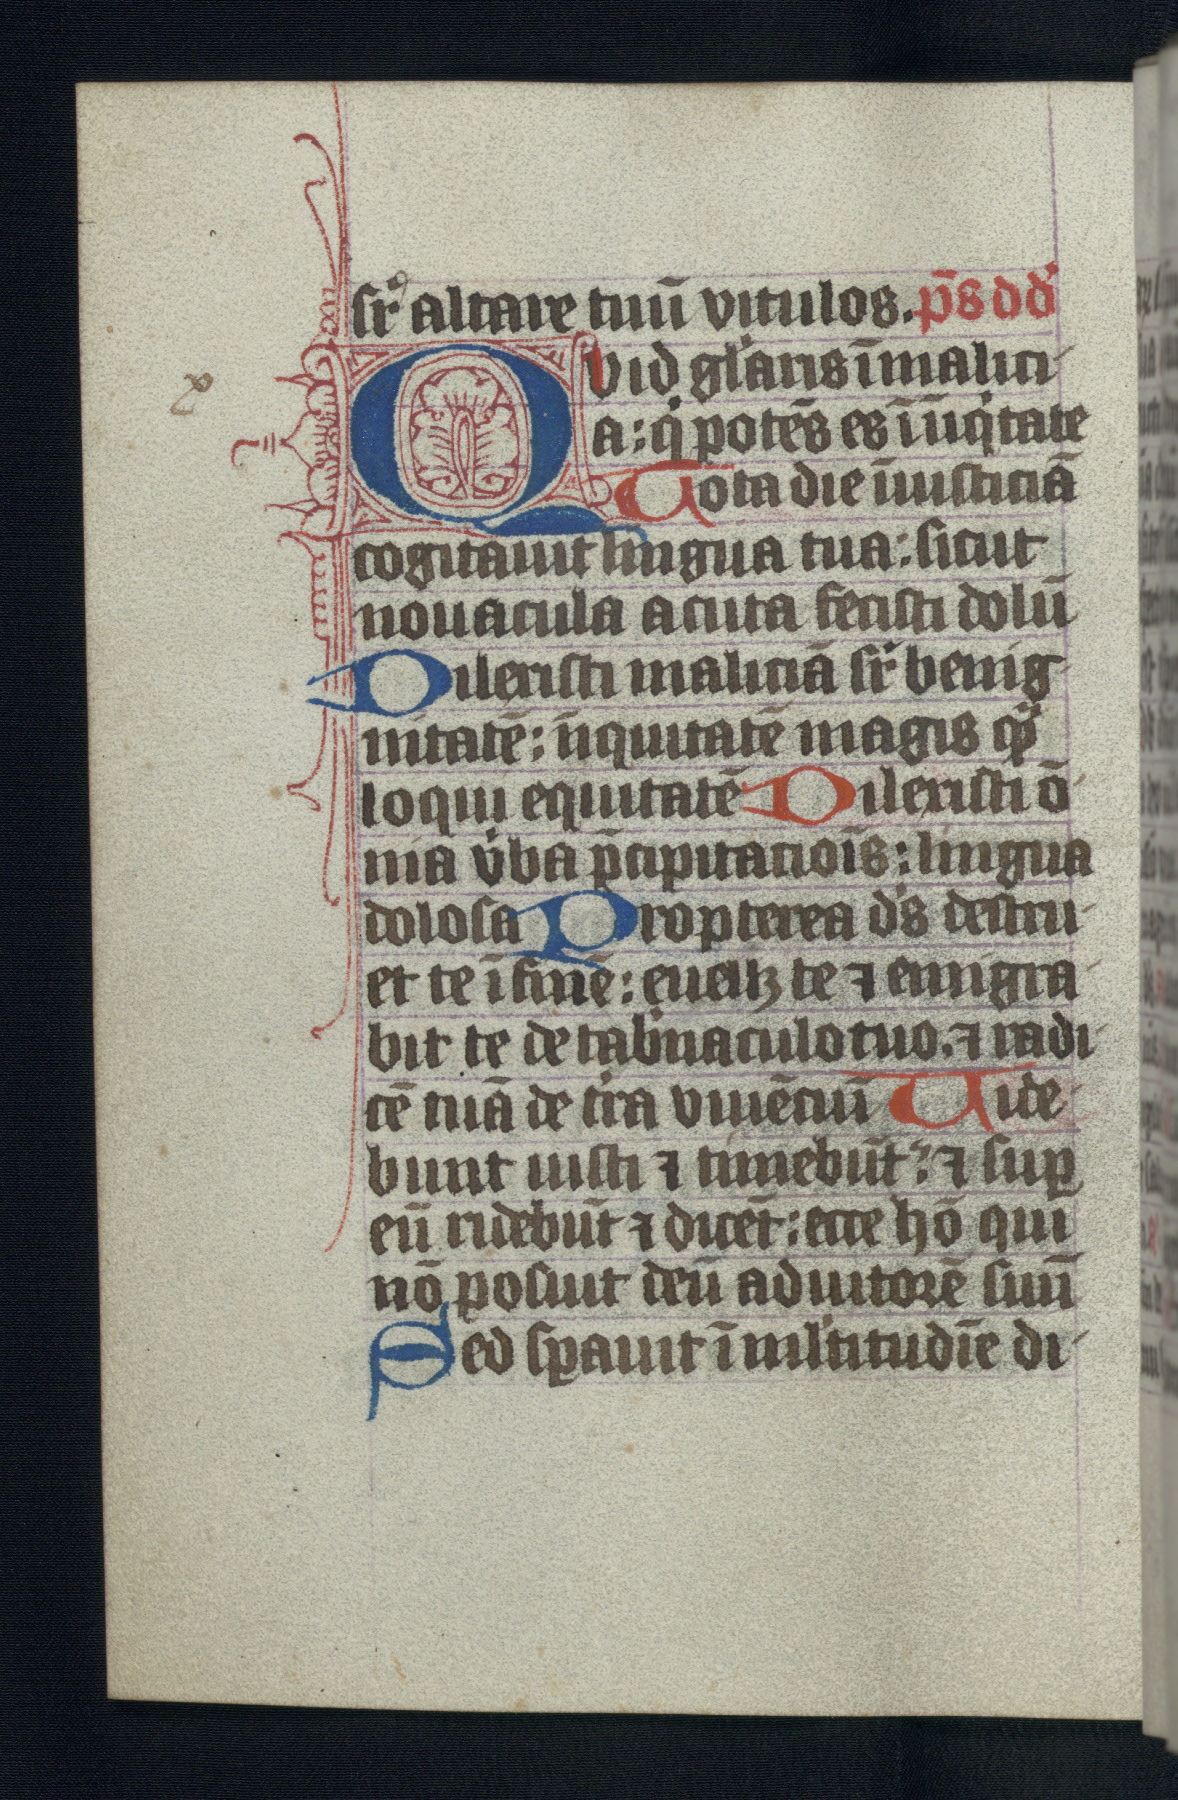 sr̄ altare tuū vitulos. p̄s dd
Quid gl'aris ī malici
a: q̇ potēs es ī iīq'tate
Tota die īiusticiā
cogitauit lingua tua: sicut
nouacula acuta fecisti dolū
Dilexisti maliciā sr̄ benig
nitatē: iīquitatē magis qͣꝫ
loqui equitatē Dilexisti ō
nia v̓ba p̄cipitacioīs: lingua
dolosa Propterea ds̄ destru
et te ī finē: euellꝫ te ⁊ emigra
bit te de tab̓naculo tuo. ⁊ radi
cē tuā de t̓ra viuēciū Uide
bunt iusti ⁊ timebūt: ⁊ suꝑ
eū ridebūt ⁊ dicēt: ecce hō qui
nō posuit deū adiutorē suū
Sed sꝑauit ī ml̓titudīe di